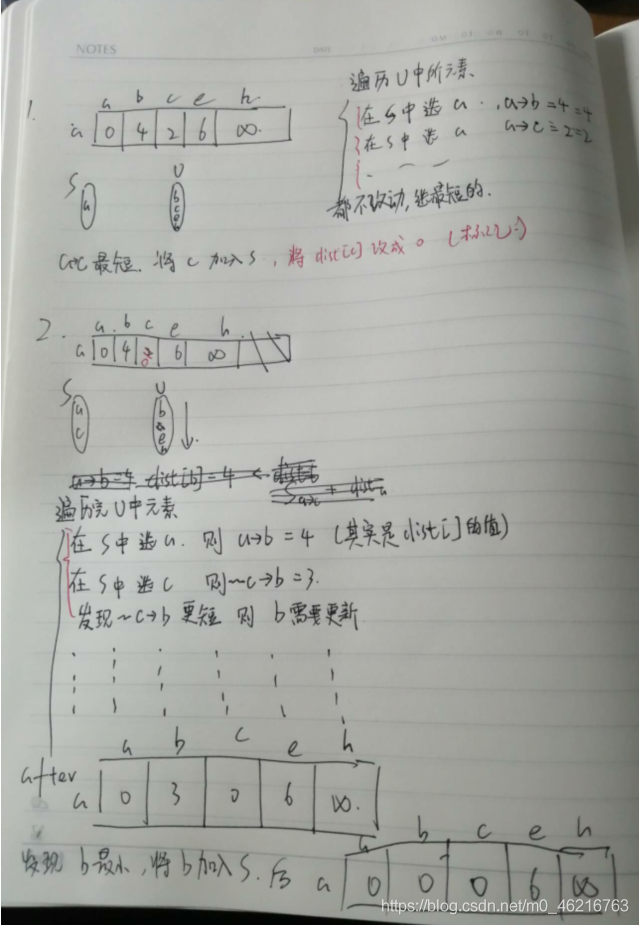 NOTES
遍历U中所元素
1.
a b c e h
a 0 4 2 6 ∞.
在S中选a ,a→b=4=4
在S中选a a→c=2=2
S U
a b c e h
都不改动,
最短的.
a→c最短. 将c加入S, 将dist[c]改成0 (标记)
2.
a b c e h
a 0 4 0 6 ∞
S U
a c b e h
a→b=4 dist[b]=4 ←
遍历完U中元素
在S中选a. 则 a→b=4 (其实是dist[]的值)
在S中选c 则~c→b=3.
发现~c→b更短 则 b需要更新
a b c e h
after
a 0 3 0 6 ∞.
发现b最小,将b加入S.后
a b c e h
a 0 0 0 6 ∞
https://blog.csdn.net/m0_46216763